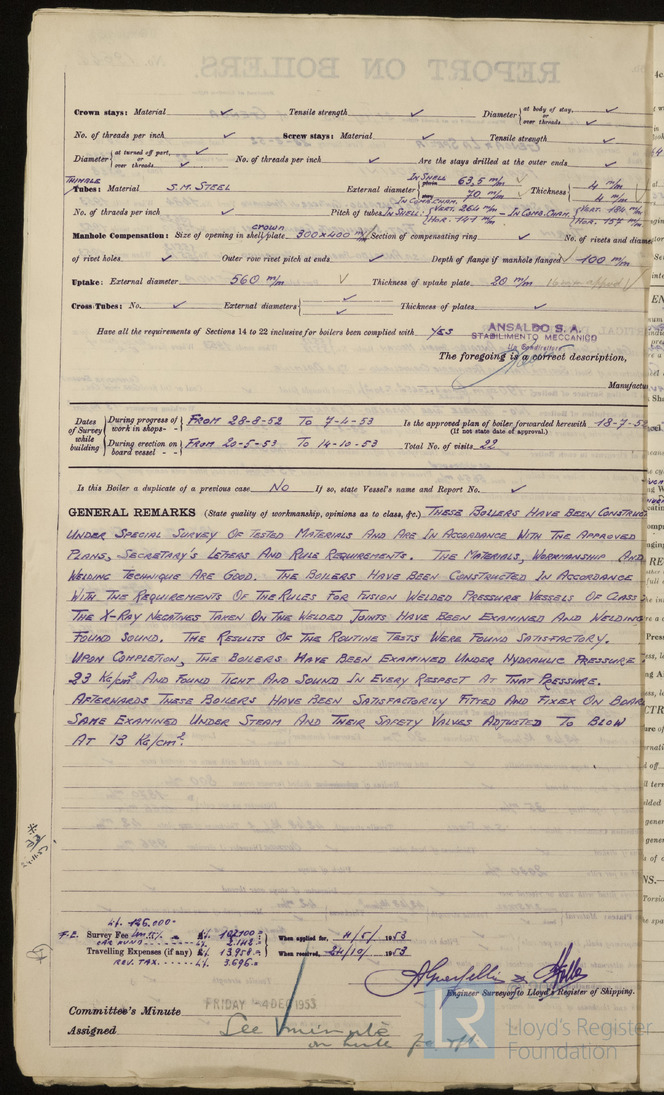 Crown stays: Material ✓ Tensile strength ✓ Diameter { at body of stay, ✓ or over threads ✓
No. of threads per inch ✓ Screw stays: Material ✓ Tensile strength ✓
Diameter { at turned off part, ✓ or over threads ✓ No. of threads per inch ✓ Are the stays drilled at the outer ends ✓
THIMBLE
Tubes: Material S.M. STEEL External diameter { IN SHELL 63,5 m/m ✓ IN COMB. CHAM. 70 m/m ✓ Thickness { 4 m/m 4 m/m
No. of threads per inch ✓ Pitch of tubes IN SHELL: { VERT. 264 m/m HOR. 141 m/m – IN COMB. CHAM. { VERT. 184 m/m HOR. 157 m/m
Manhole Compensation: Size of opening in shell/plate crown 300x400 m/m Section of compensating ring ✓ No. of rivets and diame
of rivet holes ✓ Outer row rivet pitch at ends ✓ Depth of flange if manhole flanged ✓ 100 m/m
Uptake: External diameter 560 m/m ✓ Thickness of uptake plate 20 m/m
Cross Tubes: No. ✓ External diameters { ✓ ✓ Thickness of plates ✓
Have all the requirements of Sections 14 to 22 inclusive for boilers been complied with YES
ANSALDO S. A.
STABILIMENTO MECCANICO
The foregoing is a correct description,
Manufactu
Dates of Survey while building { During progress of work in shops - - } FROM 28-8-52 TO 7-4-53 Is the approved plan of boiler forwarded herewith 18-7-52
(If not state date of approval.)
{ During erection on board vessel - - } FROM 20-5-53 TO 14-10-53 Total No. of visits 22
Is this Boiler a duplicate of a previous case NO If so, state Vessel's name and Report No. ✓
GENERAL REMARKS (State quality of workmanship, opinions as to class, &c.) THESE BOILERS HAVE BEEN CONSTRUC
UNDER SPECIAL SURVEY OF TESTED MATERIALS AND ARE IN ACCORDANCE WITH THE APPROVED
PLANS, SECRETARY'S LETTERS AND RULE REQUIREMENTS. THE MATERIALS, WORKMANSHIP AND
WELDING TECHNIQUE ARE GOOD. THE BOILERS HAVE BEEN CONSTRUCTED IN ACCORDANCE
WITH THE REQUIREMENTS OF THE RULES FOR FUSION WELDED PRESSURE VESSELS OF CLASS
THE X-RAY NEGATIVES TAKEN ON THE WELDED JOINTS HAVE BEEN EXAMINED AND WELDING
FOUND SOUND. THE RESULTS OF THE ROUTINE TESTS WERE FOUND SATISFACTORY.
UPON COMPLETION, THE BOILERS HAVE BEEN EXAMINED UNDER HYDRAULIC PRESSURE
23 KG/CM² AND FOUND TIGHT AND SOUND IN EVERY RESPECT AT THAT PRESSURE.
AFTERWARDS THESE BOILERS HAVE BEEN SATISFACTORILY FITTED AND FIXEX ON BOAR
SAME EXAMINED UNDER STEAM AND THEIR SAFETY VALVES ADJUSTED TO BLOW
AT 13 KG/CM².
126.000=
F.E. Survey Fee 107.100=
CAR FUND
Travelling Expenses (if any) 13.958=
REV. TAX. 3.696=
When applied for, 11/5/1953
When received, 24/10/1953
Engineer Surveyor to Lloyd's Register of Shipping.
Committee's Minute FRIDAY - 4 DEC 1953
Assigned See minute
on
Lloyd's Register
Foundation